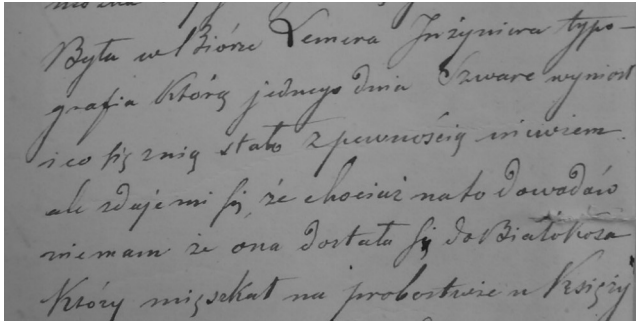 Była w Biórze Lemera Inżyniera typo-
grafia którą jednego dnia Szwarc wyniosł
i co się z nią stało z pewnością nie wiem
ale zdaje mi się, że chociaż na to dowodów
niemam że ona dostała się do Białokoza
który mięszkał na probostwie u Księży